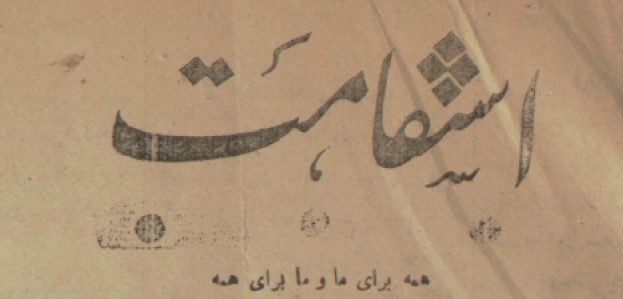 استقامت
همه برای ما و ما برای همه